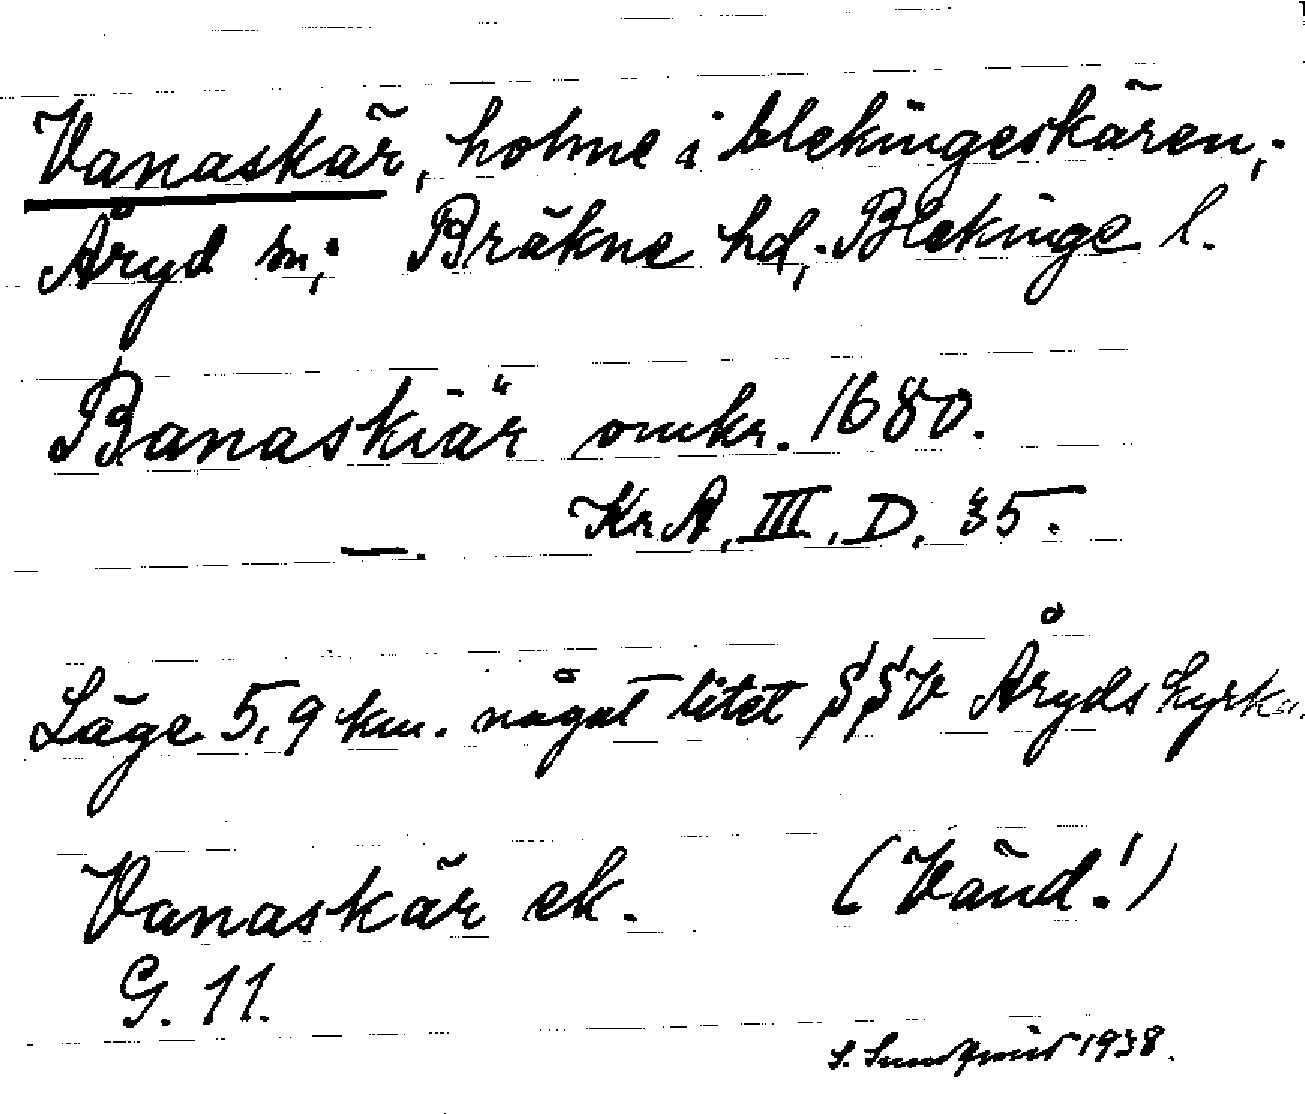 Vanaskär, holme i blekingeskären,
Åryd sn; Bräkne hd; Blekinge l.
Banaskiär omkr. 1680.
—. KrA, III, D, 35.
Läge 5,9 km. något litet SSV Åryds kyrka.
Vanaskär ek. (Vänd!)
G. 11.
S. Sundqvist 1938.